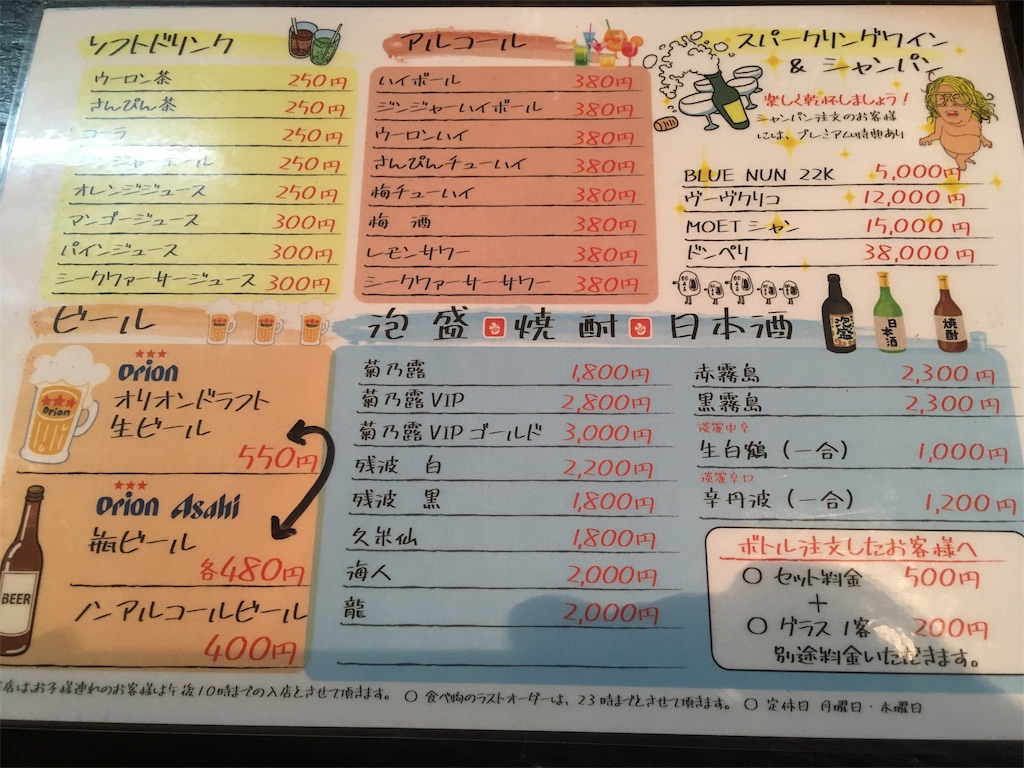 ソフトドリンク
ウーロン茶 250円
さんぴん茶 250円
コーラ 250円
ジンジャーエール 250円
オレンジジュース 250円
マンゴージュース 300円
パインジュース 300円
シークヮーサージュース 300円
アルコール
ハイボール 380円
ジンジャーハイボール 380円
ウーロンハイ 380円
さんぴんチューハイ 380円
梅チューハイ 380円
梅 酒 380円
レモンサワー 380円
シークヮーサーサワー 380円
スパークリングワイン
& シャンパン
楽しく乾杯しましょう!
シャンパン注文のお客様
には、プレミアム特典あり
BLUE NUN 22K 5,000円
ヴーヴクリコ 12,000円
MOETシャン 15,000円
ドンペリ 38,000円
ビール
Orion
オリオンドラフト
生ビール
550円
Orion
Orion Asahi
瓶ビール
各480円
BEER
ノンアルコールビール
400円
泡盛 焼酎 日本酒
泡盛
日本酒
焼酎
菊乃露 1,800円
菊乃露VIP 2,800円
菊乃露VIPゴールド 3,000円
残波 白 2,200円
残波 黒 1,800円
久米仙 1,800円
海人 2,000円
龍 2,000円
赤霧島 2,300円
黒霧島 2,300円
淡麗中辛
生白鶴(一合) 1,000円
淡麗辛口
辛丹波(一合) 1,200円
ボトル注文したお客様へ
○ セット料金 500円
+
○ グラス1客 200円
別途料金いただきます。
店はお子様連れのお客様は午後10時までの入店とさせて頂きます。 ○ 食べ物のラストオーダーは、23時までとさせて頂きます。 ○ 定休日 月曜日・木曜日